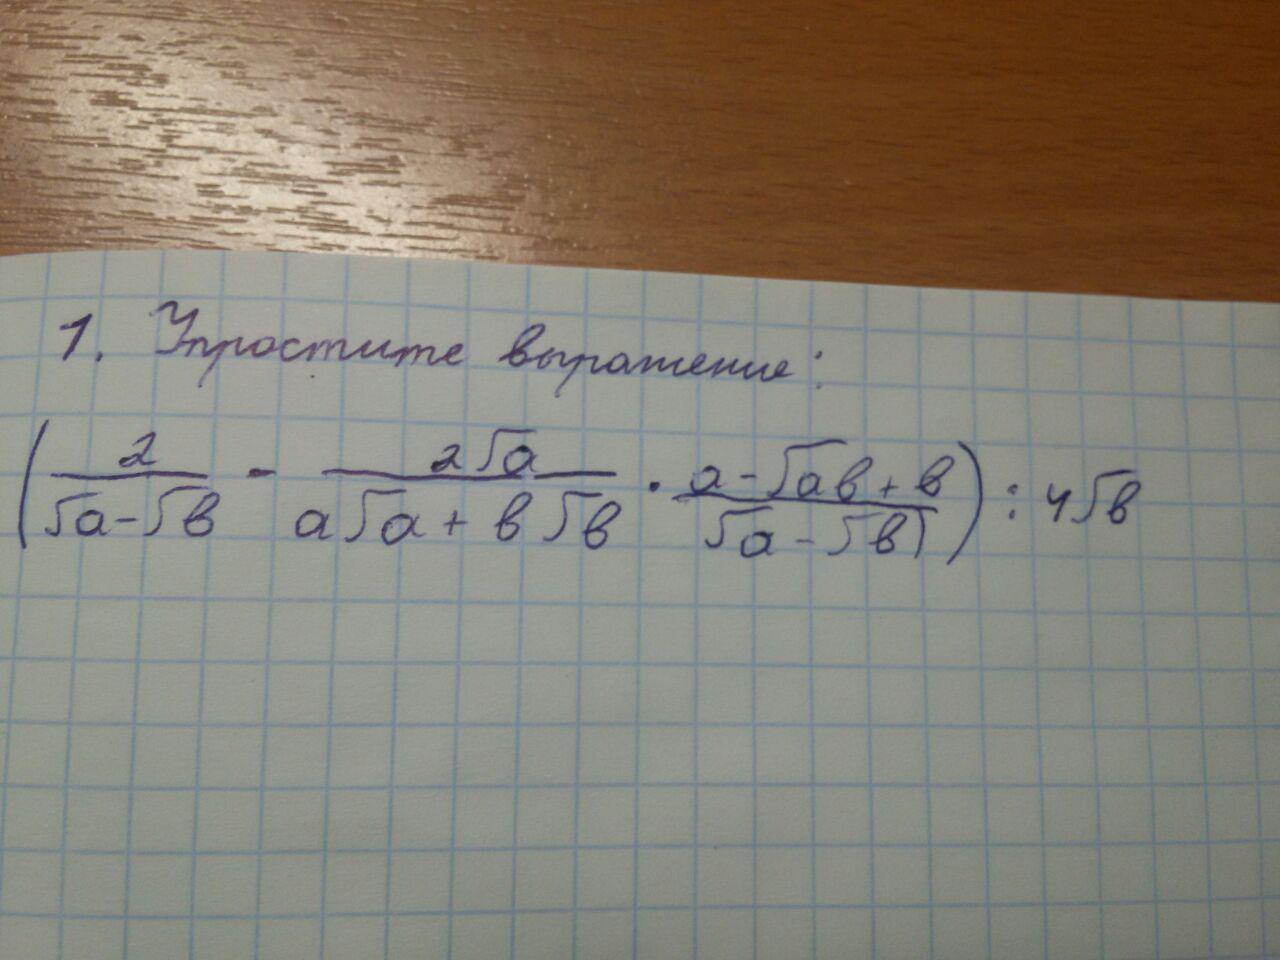 1. Упростите выражение:
(2/(√a-√b) - 2√a/(a√a + b√b) · (a-√ab+b)/(√a-√b)) : 4√b